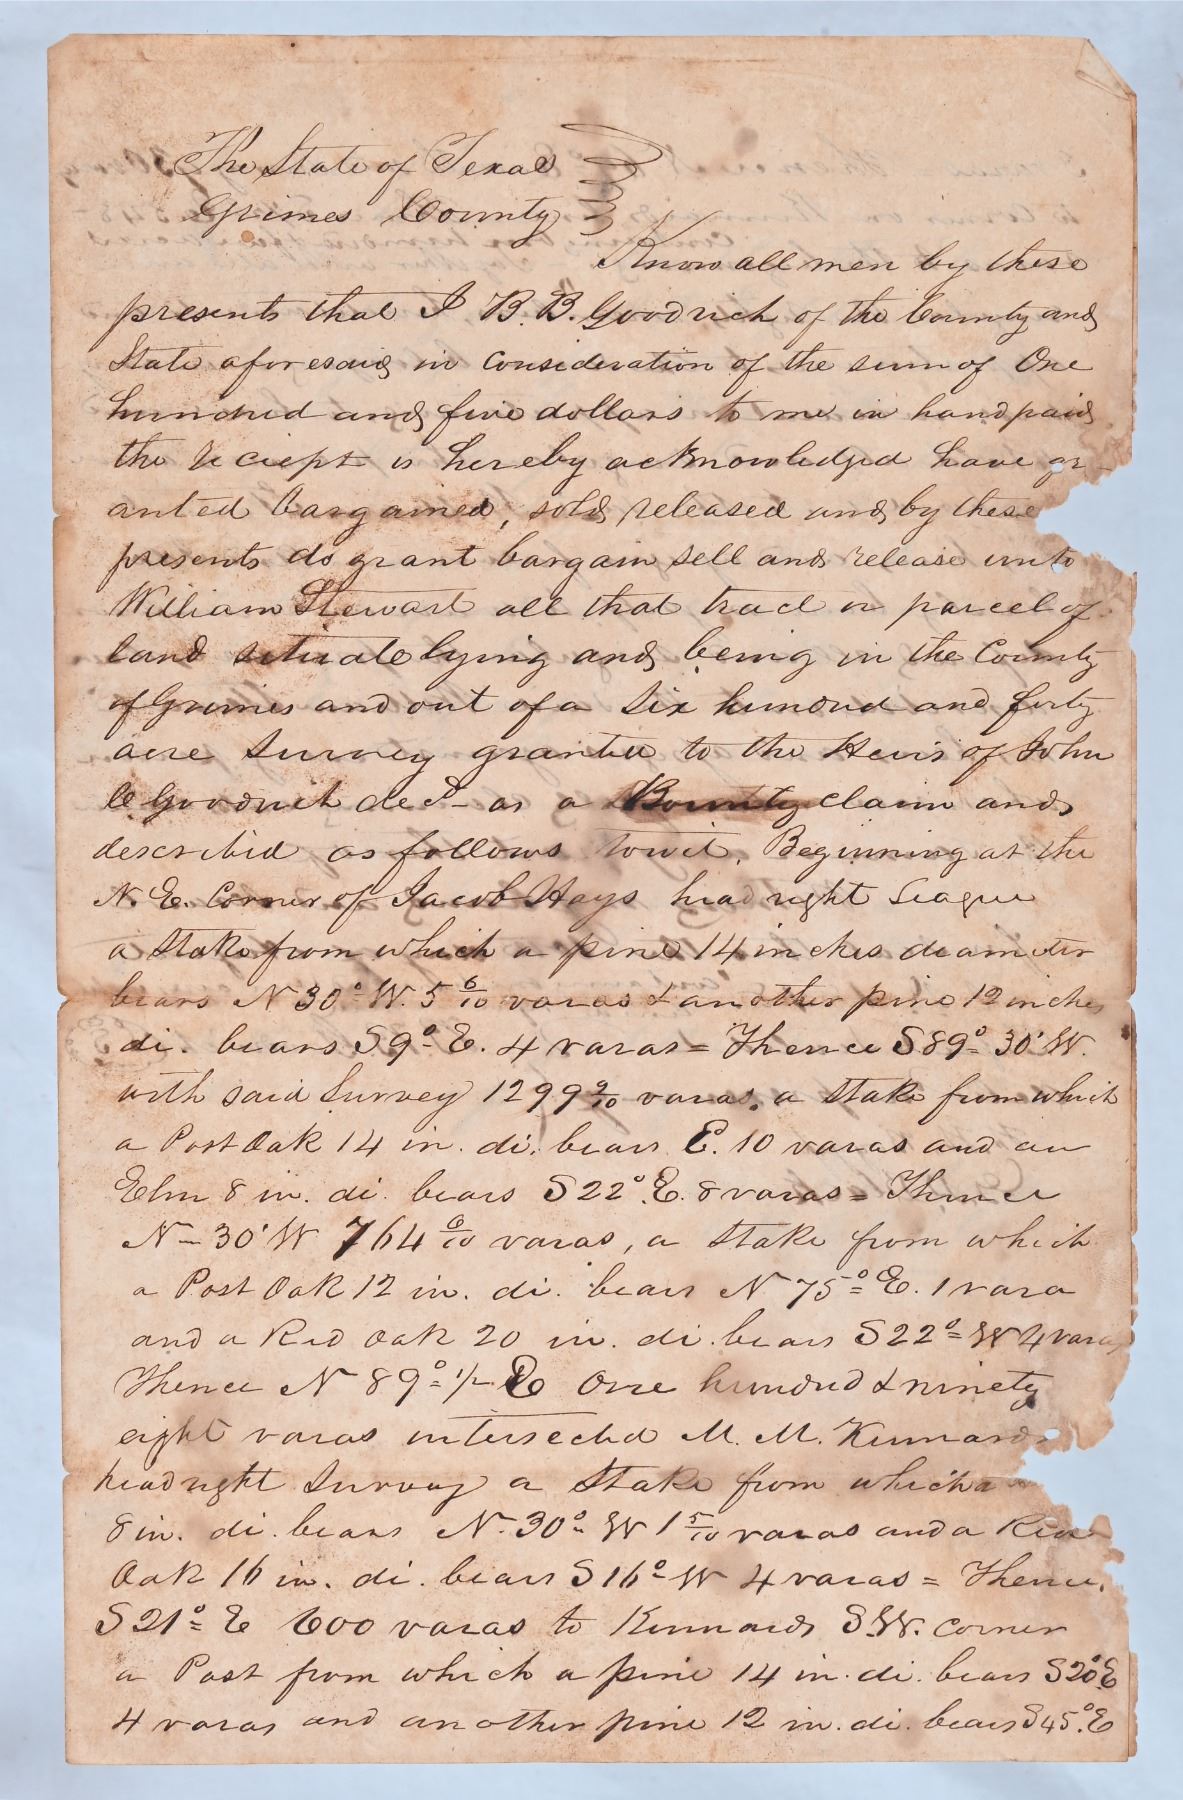 The State of Texas
Grimes County
Know all men by these
presents that I B. B. Goodrich of the County and
State aforesaid in Consideration of the sum of One
hundred and five dollars to me in hand paid
the reciept is hereby acknowledged have gr-
anted bargained, sold, released and by these
presents do grant bargain sell and release unto
William Stewart all that tract or parcel of
land situate lying and being in the County
of Grimes and out of a Six hundred and forty
acre Survey granted to the Heirs of John
C Goodrich decd- as a Bounty claim and
described as follows towit. Beginning at the
N. E. Corner of Jacob Hays head right League
a Stake from which a pine 14 inches diameter
bears N 30° W. 5 6/10 varas & another pine 12 inches
di. bears S 9° E. 4 varas = Thence S 89° 30' W.
with said Survey 1299 9/10 varas, a Stake from which
a Post Oak 14 in. di. bears E. 10 varas and an
Elm 8 in. di. bears S 22° E. 8 varas = Thence
N - 30' W 764 6/10 varas, a Stake from which
a Post Oak 12 in. di. bears N 75° E. 1 vara
and a Red Oak 20 in. di. bears S 22° W 4 varas
Thence N 89° 1/2 E One hundred & ninety
eight varas intersected M. M. Kennards
headright Survey a Stake from which a
8 in. di. bears N. 30° W 1 5/10 varas and a Red
Oak 16 in. di. bears S 16° W 4 varas = Thence,
S 21° E 600 varas to Kennards S.W. corner
a Post from which a pine 14 in. di. bears S 20° E
4 varas and another pine 12 in. di. bears S 45° E